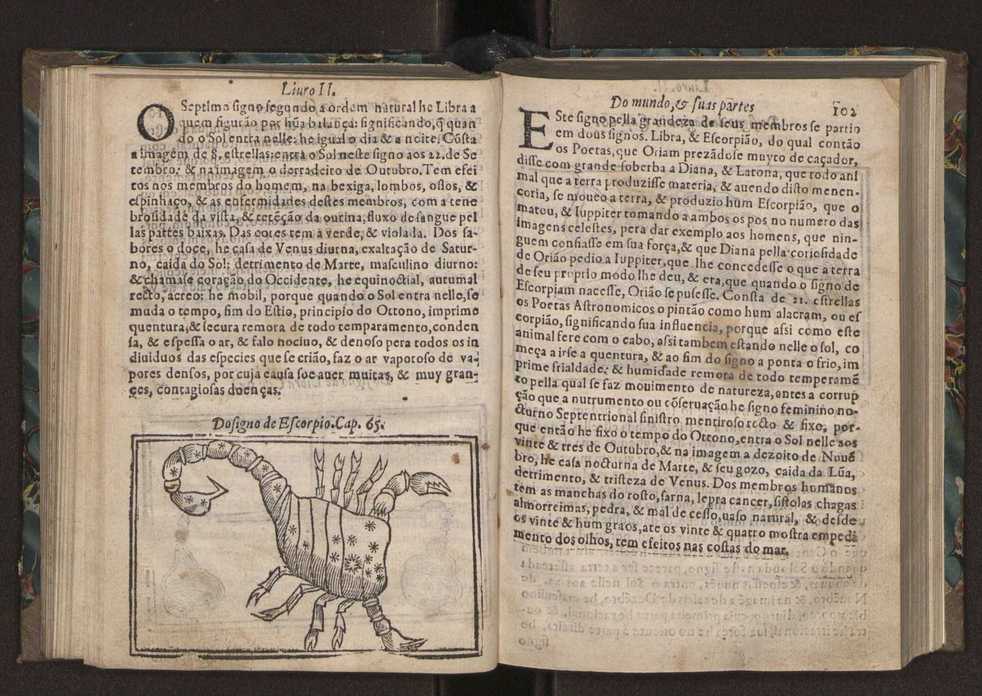 Liuro II.
O Septimo signo segundo a ordem natural he Libra a
quem figurão por hũa balança: significando, q̃ quan
do o Sol entra nelle: he igual o dia & a noite. Cõsta
a imagem de 8. estrellas: entra o Sol neste signo aos 22. de Se
tembro: & na imagem o derradeiro de Outubro. Tem efei
tos nos membros do homem, na bexiga, lombos, ossos, &
espinhaço, & as enfermidades destes membros, com a tene
brosidade da vista, & retẽção da ourina, fluxo de sangue pel
las partes baixas. Das cores tem a verde, & violada. Dos sa-
bores o doce, he casa de Venus diurna, exaltação de Satur-
no, caida do Sol: detrimento de Marte, masculino diurno:
& chamase coração do Occidente, he equinoctial, autumal
recto, aereo: he mobil, porque quando o Sol entra nelle, se
muda o tempo, fim do Estio, principio do Ottono, imprime
quentura, & secura remota de todo temparamento, conden
sa, & espessa o ar, & falo nociuo, & denoso pera todos os in
diuiduos das especies que se crião, faz o ar vaporoso de va-
pores densos, por cuja causa soe auer muitas, & muy gran-
ces, contagiosas doenças.
Do signo de Escorpio. Cap. 65.
Do mundo, & suas partes
102
ESte signo pella grandeza de seus membros se partio
em dous signos. Libra, & Escorpião, do qual contão
os Poetas, que Oriam prezãdose muyto de caçador,
disse com grande soberba a Diana, & Latona, que todo ani
mal que a terra produzisse materia, & auendo disto menen-
coria, se moueo a terra, & produzio hum Escorpião, que o
matou, & Iuppiter tomando a ambos os pos no numero das
imagens celestes, pera dar exemplo aos homens, que nin-
guem confiasse em sua força, & que Diana pella coriosidade
de Orião pedio a Iuppiter, que lhe concedesse o que a terra
de seu proprio modo lhe deu, & era, que quando o signo de
Escorpiam nacesse, Orião se pusesse. Consta de 21. estrellas
os Poetas Astronomicos o pintão como hum alacram, ou es
corpião, significando sua influencia, porque assi como este
animal fere com o cabo, assi tambem estando nelle o sol, co
meça a irse a quentura, & ao fim do signo a ponta o frio, im
prime frialdade: & humidade remota de todo temperamẽ
to pella qual se faz mouimento de natureza, antes a corrup
ção que a nutrumento ou cõseruação he signo feminino no-
cturno Septentrional sinistro mentiroso recto & fixo, por-
que então he fixo o tempo do Ottono, entra o Sol nelle aos
vinte & tres de Outubro, & na imagem a dezoito de Nouẽ
bro, he casa nocturna de Marte, & seu gozo, caida da Lũa,
detrimento, & tristeza de Venus. Dos membros humanos
tem as manchas do rosto, sarna, lepra cancer, fistolas chagas
almorreimas, pedra, & mal de cesso, uaso natural, & desde
os vinte & hum graos, ate os vinte & quatro mostra empedi
mento dos olhos, tem efeitos nas costas do mar,